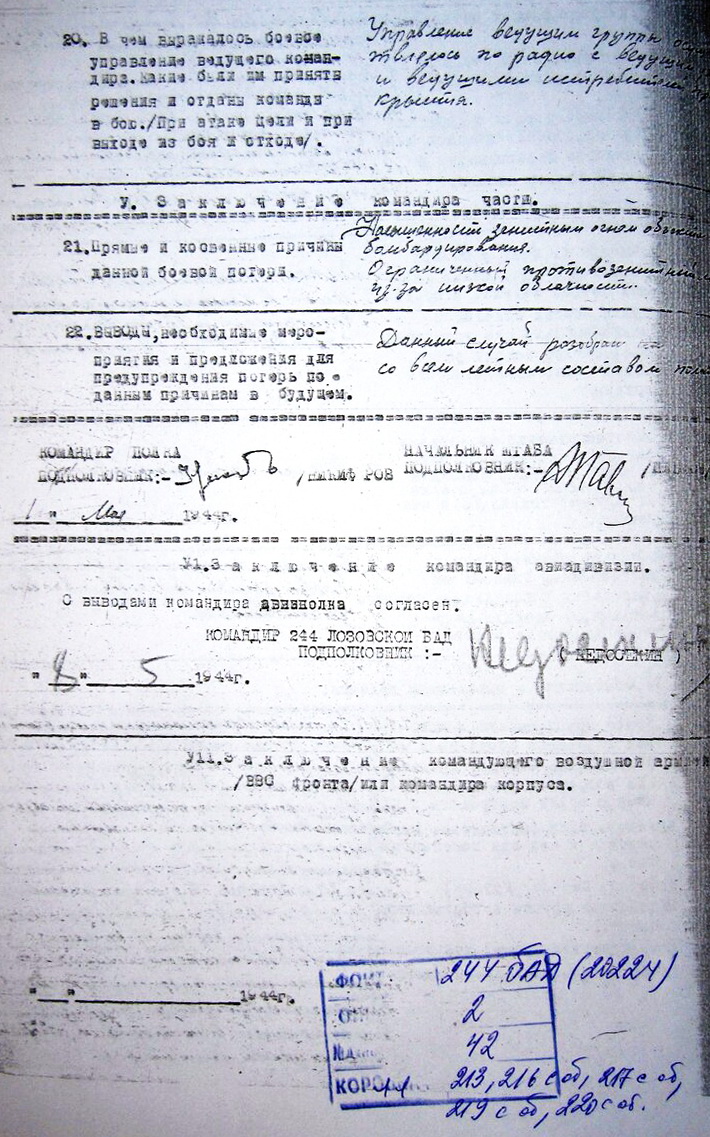 20. В чем выражалось боевое
управление ведущего коман-
дира. Какие были им приняты
решения и отданы команды
в бою./При атаке цели и при
выходе из боя и отходе/.
Управление ведущим группы
по радио с
и ведущими
У. З а к л ю ч е н и е командира части.
21. Прямые и косвенные причины
данной боевой потери.
зенитным огнем
бомбардирования.
из-за низкой облачности.
22. ВЫВОДЫ, необходимые меро-
приятия и предложения для
предупреждения потерь по
данным причинам в будущем.
Данный случай разобран
со всем летным составом
КОМАНДИР ПОЛКА
ПОДПОЛКОВНИК:-
НАЧАЛЬНИК ШТАБА
ПОДПОЛКОВНИК:-
" 1 " Мая 1944г.
У1. З а к л ю ч е н и е командира авиадивизии.
С выводами командира авиаполка согласен.
КОМАНДИР 244 ЛОЗОВСКОЙ БАД
ПОДПОЛКОВНИК :- ( НЕДОСЕКИН )
" 8 " 5 1944г.
У11. З а к л ю ч е н и е командующего воздушной армией
/ВВС фронта/или командира корпуса.
" " 1944г.
ФОНД 244 БАД (20224)
ОП. 2
42
КОРОБ 213, 216 с об, 217 с об,
219 с об, 220 с об.